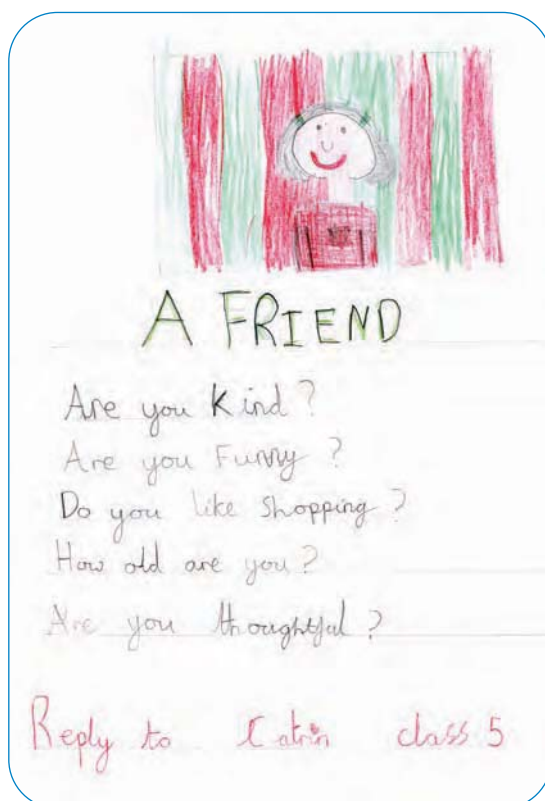 A FRIEND
Are you Kind?
Are you Funny?
Do you like Shopping?
How old are you?
Are you thoughtful?
Reply to Catrin class 5